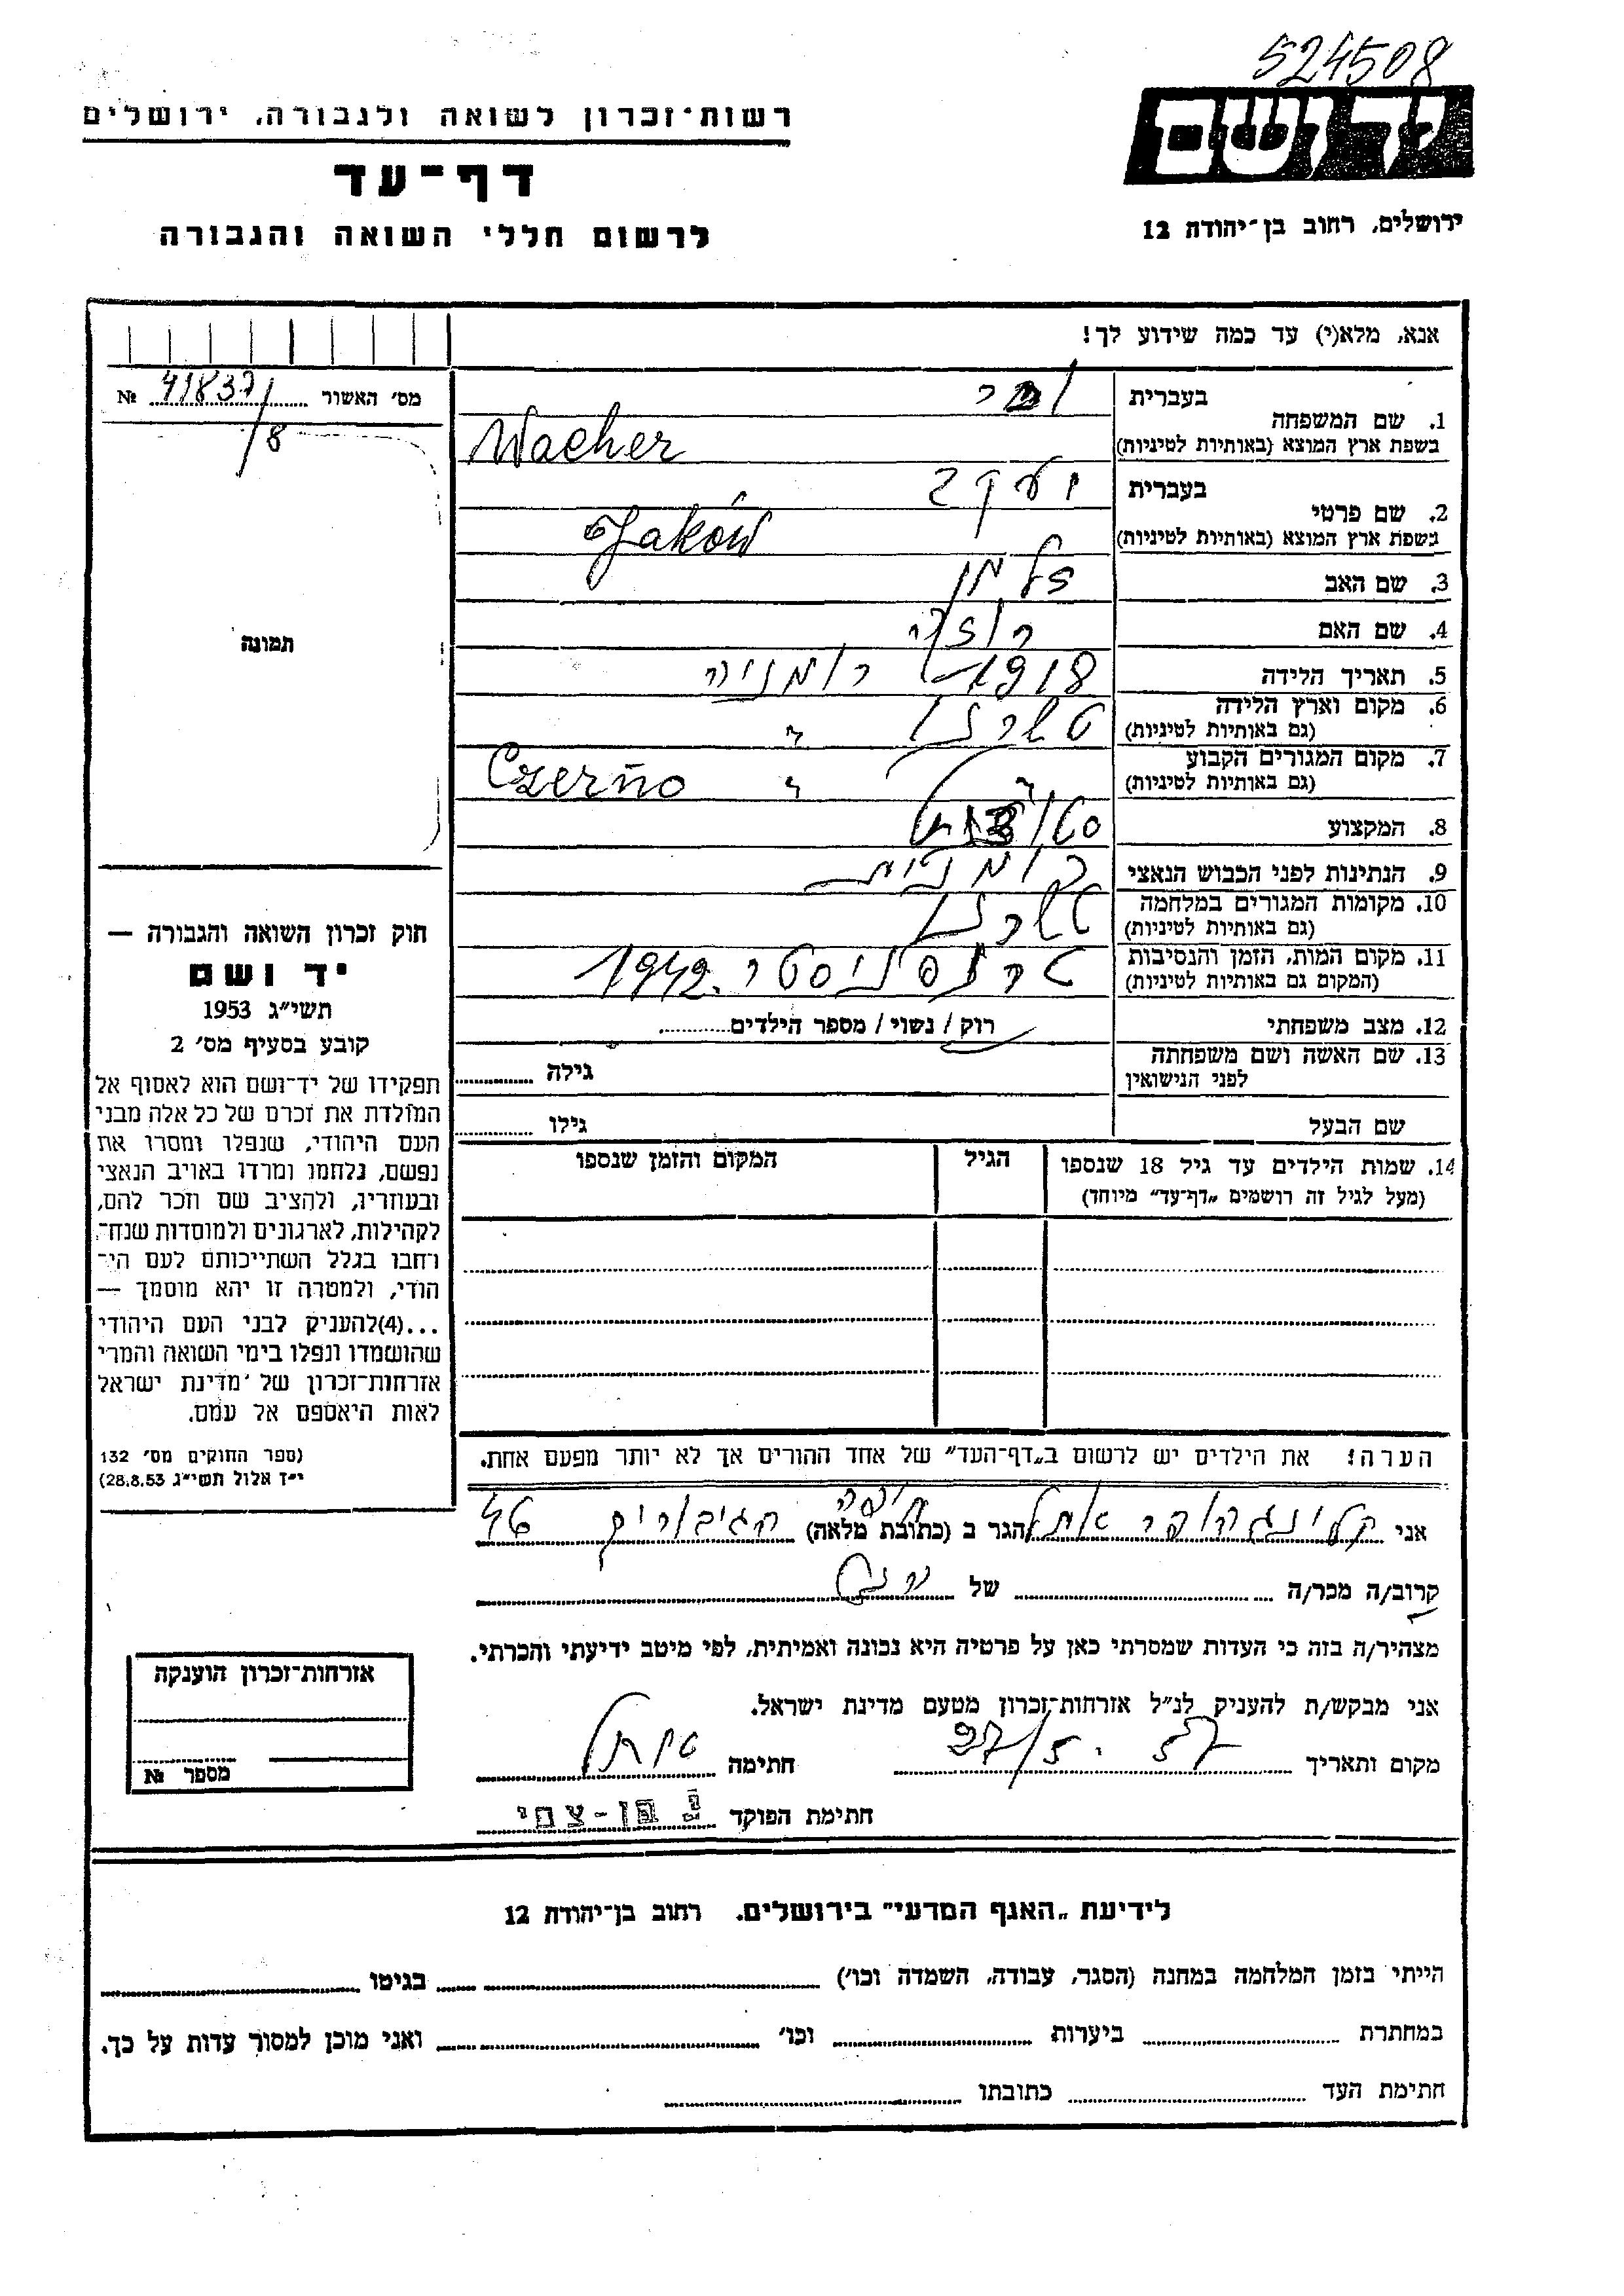 524508
יד ושם
ירושלים, רחוב בן־יהודה 12
רשות־זכרון לשואה ולגבורה, ירושלים
דף־עד
לרשום חללי השואה והגבורה
אנא, מלא(י) עד כמה שידוע לך!
מס׳ האשור № 41837/8
תמונה
1. שם המשפחה
בעברית
בשפת ארץ המוצא (באותיות לטיניות) Wacher
2. שם פרטי
בעברית יעקב
בשפת ארץ המוצא (באותיות לטיניות) Jaków
3. שם האב זלמן
4. שם האם רוזה
5. תאריך הלידה 1918 רומניה
6. מקום וארץ הלידה
(גם באותיות לטיניות) "
7. מקום המגורים הקבוע
(גם באותיות לטיניות) " " Czerno
8. המקצוע סטודנט
9. הנתינות לפני הכבוש הנאצי רומנית
10. מקומות המגורים במלחמה
(גם באותיות לטיניות)
11. מקום המות, הזמן והנסיבות
(המקום גם באותיות לטיניות) טרנסניסטר 1942.
12. מצב משפחתי רוק / נשוי / מספר הילדים
13. שם האשה ושם משפחתה
לפני הנישואין גילה
שם הבעל גילו
14. שמות הילדים עד גיל 18 שנספו הגיל המקום והזמן שנספו
(מעל לגיל זה רושמים „דף־עד” מיוחד)
הערה! את הילדים יש לרשום ב„דף־העד” של אחד ההורים אך לא יותר מפעם אחת.
חוק זכרון השואה והגבורה —
יד ושם
תשי״ג 1953
קובע בסעיף מס׳ 2
תפקידו של יד־ושם הוא לאסוף אל
המולדת את זכרם של כל אלה מבני
העם היהודי, שנפלו ומסרו את
נפשם, נלחמו ומרדו באויב הנאצי
ובעוזריו, ולהציב שם וזכר להם,
לקהילות, לארגונים ולמוסדות שנח־
רחבו בגלל השתייכותם לעם הי־
הודי, ולמטרה זו יהא מוסמך —
...(4)להעניק לבני העם היהודי
שהושמדו ונפלו בימי השואה והמרי
אזרחות־זכרון של מדינת ישראל
לאות היאספם אל עמם.
(ספר החוקים מס׳ 132
י״ז אלול תשי״ג 28.8.53)
אני קלינגהופר אתל הגר ב (כתובת מלאה) חיפה הגיבורים 46
קרוב/ה מכר/ה של
מצהיר/ה בזה כי העדות שמסרתי כאן על פרטיה היא נכונה ואמיתית, לפי מיטב ידיעתי והכרתי.
אני מבקש/ת להעניק לנ״ל אזרחות־זכרון מטעם מדינת ישראל.
מקום ותאריך 27/5.57 חתימה
חתימת הפוקד י בן-צבי
אזרחות־זכרון הוענקה
מספר №
לידיעת „האגף המדעי” בירושלים. רחוב בן־יהודה 12
הייתי בזמן המלחמה במחנה (הסגר, עבודה, השמדה וכו׳) בגיטו
במחתרת ביערות וכו׳ ואני מוכן למסור עדות על כך.
חתימת העד כתובתו